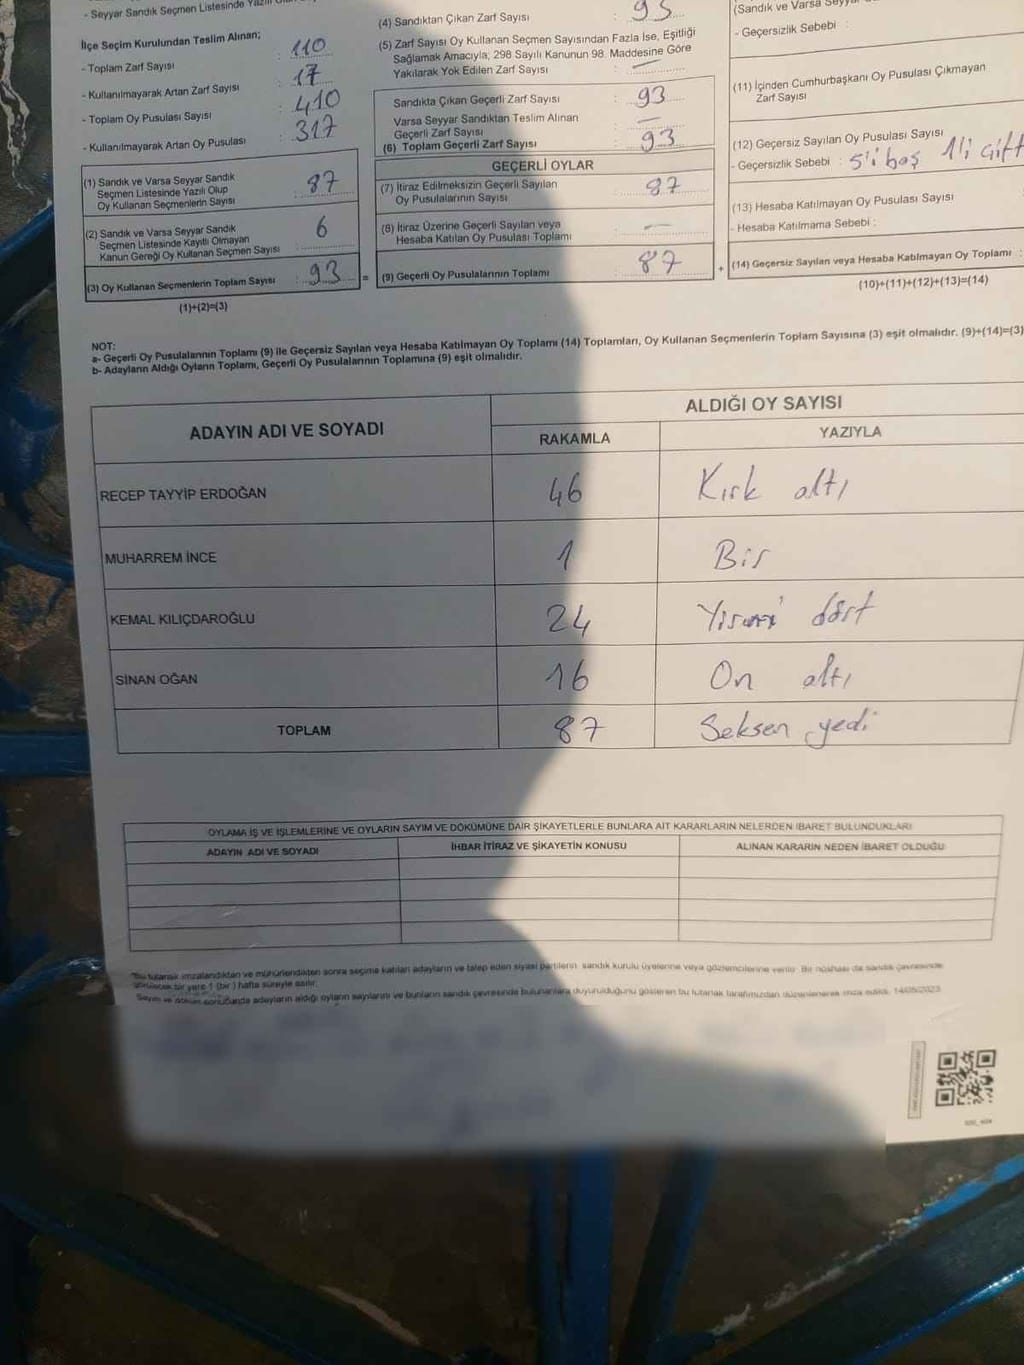 - Seyyar Sandık Seçmen Listesinde Yazılı
İlçe Seçim Kurulundan Teslim Alınan;
- Toplam Zarf Sayısı : 110
- Kullanılmayarak Artan Zarf Sayısı : 17
- Toplam Oy Pusulası Sayısı : 410
- Kullanılmayarak Artan Oy Pusulası : 317
(1) Sandık ve Varsa Seyyar Sandık
Seçmen Listesinde Yazılı Olup
Oy Kullanan Seçmenlerin Sayısı : 87
(2) Sandık ve Varsa Seyyar Sandık
Seçmen Listesinde Kayıtlı Olmayan
Kanun Gereği Oy Kullanan Seçmen Sayısı : 6
(3) Oy Kullanan Seçmenlerin Toplam Sayısı : 93 =
(1)+(2)=(3)
(4) Sandıktan Çıkan Zarf Sayısı : 93
(5) Zarf Sayısı Oy Kullanan Seçmen Sayısından Fazla İse, Eşitliği
Sağlamak Amacıyla; 298 Sayılı Kanunun 98. Maddesine Göre
Yakılarak Yok Edilen Zarf Sayısı : —
Sandıkta Çıkan Geçerli Zarf Sayısı : 93
Varsa Seyyar Sandıktan Teslim Alınan
Geçerli Zarf Sayısı : —
(6) Toplam Geçerli Zarf Sayısı : 93
GEÇERLİ OYLAR
(7) İtiraz Edilmeksizin Geçerli Sayılan
Oy Pusulalarının Sayısı : 87
(8) İtiraz Üzerine Geçerli Sayılan veya
Hesaba Katılan Oy Pusulası Toplamı : —
(9) Geçerli Oy Pusulalarının Toplamı : 87 +
(Sandık ve Varsa Seyyar
- Geçersizlik Sebebi :
(11) İçinden Cumhurbaşkanı Oy Pusulası Çıkmayan
Zarf Sayısı
(12) Geçersiz Sayılan Oy Pusulası Sayısı
- Geçersizlik Sebebi : 5'i boş 1'i çift
(13) Hesaba Katılmayan Oy Pusulası Sayısı
- Hesaba Katılmama Sebebi :
(14) Geçersiz Sayılan veya Hesaba Katılmayan Oy Toplamı :
(10)+(11)+(12)+(13)=(14)
NOT:
a- Geçerli Oy Pusulalarının Toplamı (9) ile Geçersiz Sayılan veya Hesaba Katılmayan Oy Toplamı (14) Toplamları, Oy Kullanan Seçmenlerin Toplam Sayısına (3) eşit olmalıdır. (9)+(14)=(3)
b- Adayların Aldığı Oyların Toplamı, Geçerli Oy Pusulalarının Toplamına (9) eşit olmalıdır.
ADAYIN ADI VE SOYADI
ALDIĞI OY SAYISI
RAKAMLA YAZIYLA
RECEP TAYYİP ERDOĞAN 46 Kırk altı
MUHARREM İNCE 1 Bir
KEMAL KILIÇDAROĞLU 24 Yirmi dört
SİNAN OĞAN 16 On altı
TOPLAM 87 Seksen yedi
OYLAMA İŞ VE İŞLEMLERİNE VE OYLARIN SAYIM VE DÖKÜMÜNE DAİR ŞİKAYETLERLE BUNLARA AİT KARARLARIN NELERDEN İBARET BULUNDUKLARI
ADAYIN ADI VE SOYADI İHBAR İTİRAZ VE ŞİKAYETİN KONUSU ALINAN KARARIN NEDEN İBARET OLDUĞU
Bu tutanak imzalandıktan ve mühürlendikten sonra seçime katılan adayların ve talep eden siyasi partilerin sandık kurulu üyelerine veya gözlemcilerine verilir. Bir nüshası da sandık çevresinde
görülecek bir yere 1 (bir) hafta süreyle asılır.
Sayım ve döküm sonucunda adayların aldığı oyların sayılarını ve bunların sandık çevresinde bulunanlara duyurulduğunu gösteren bu tutanak tarafımızdan düzenlenerek imza edildi. 14/05/2023